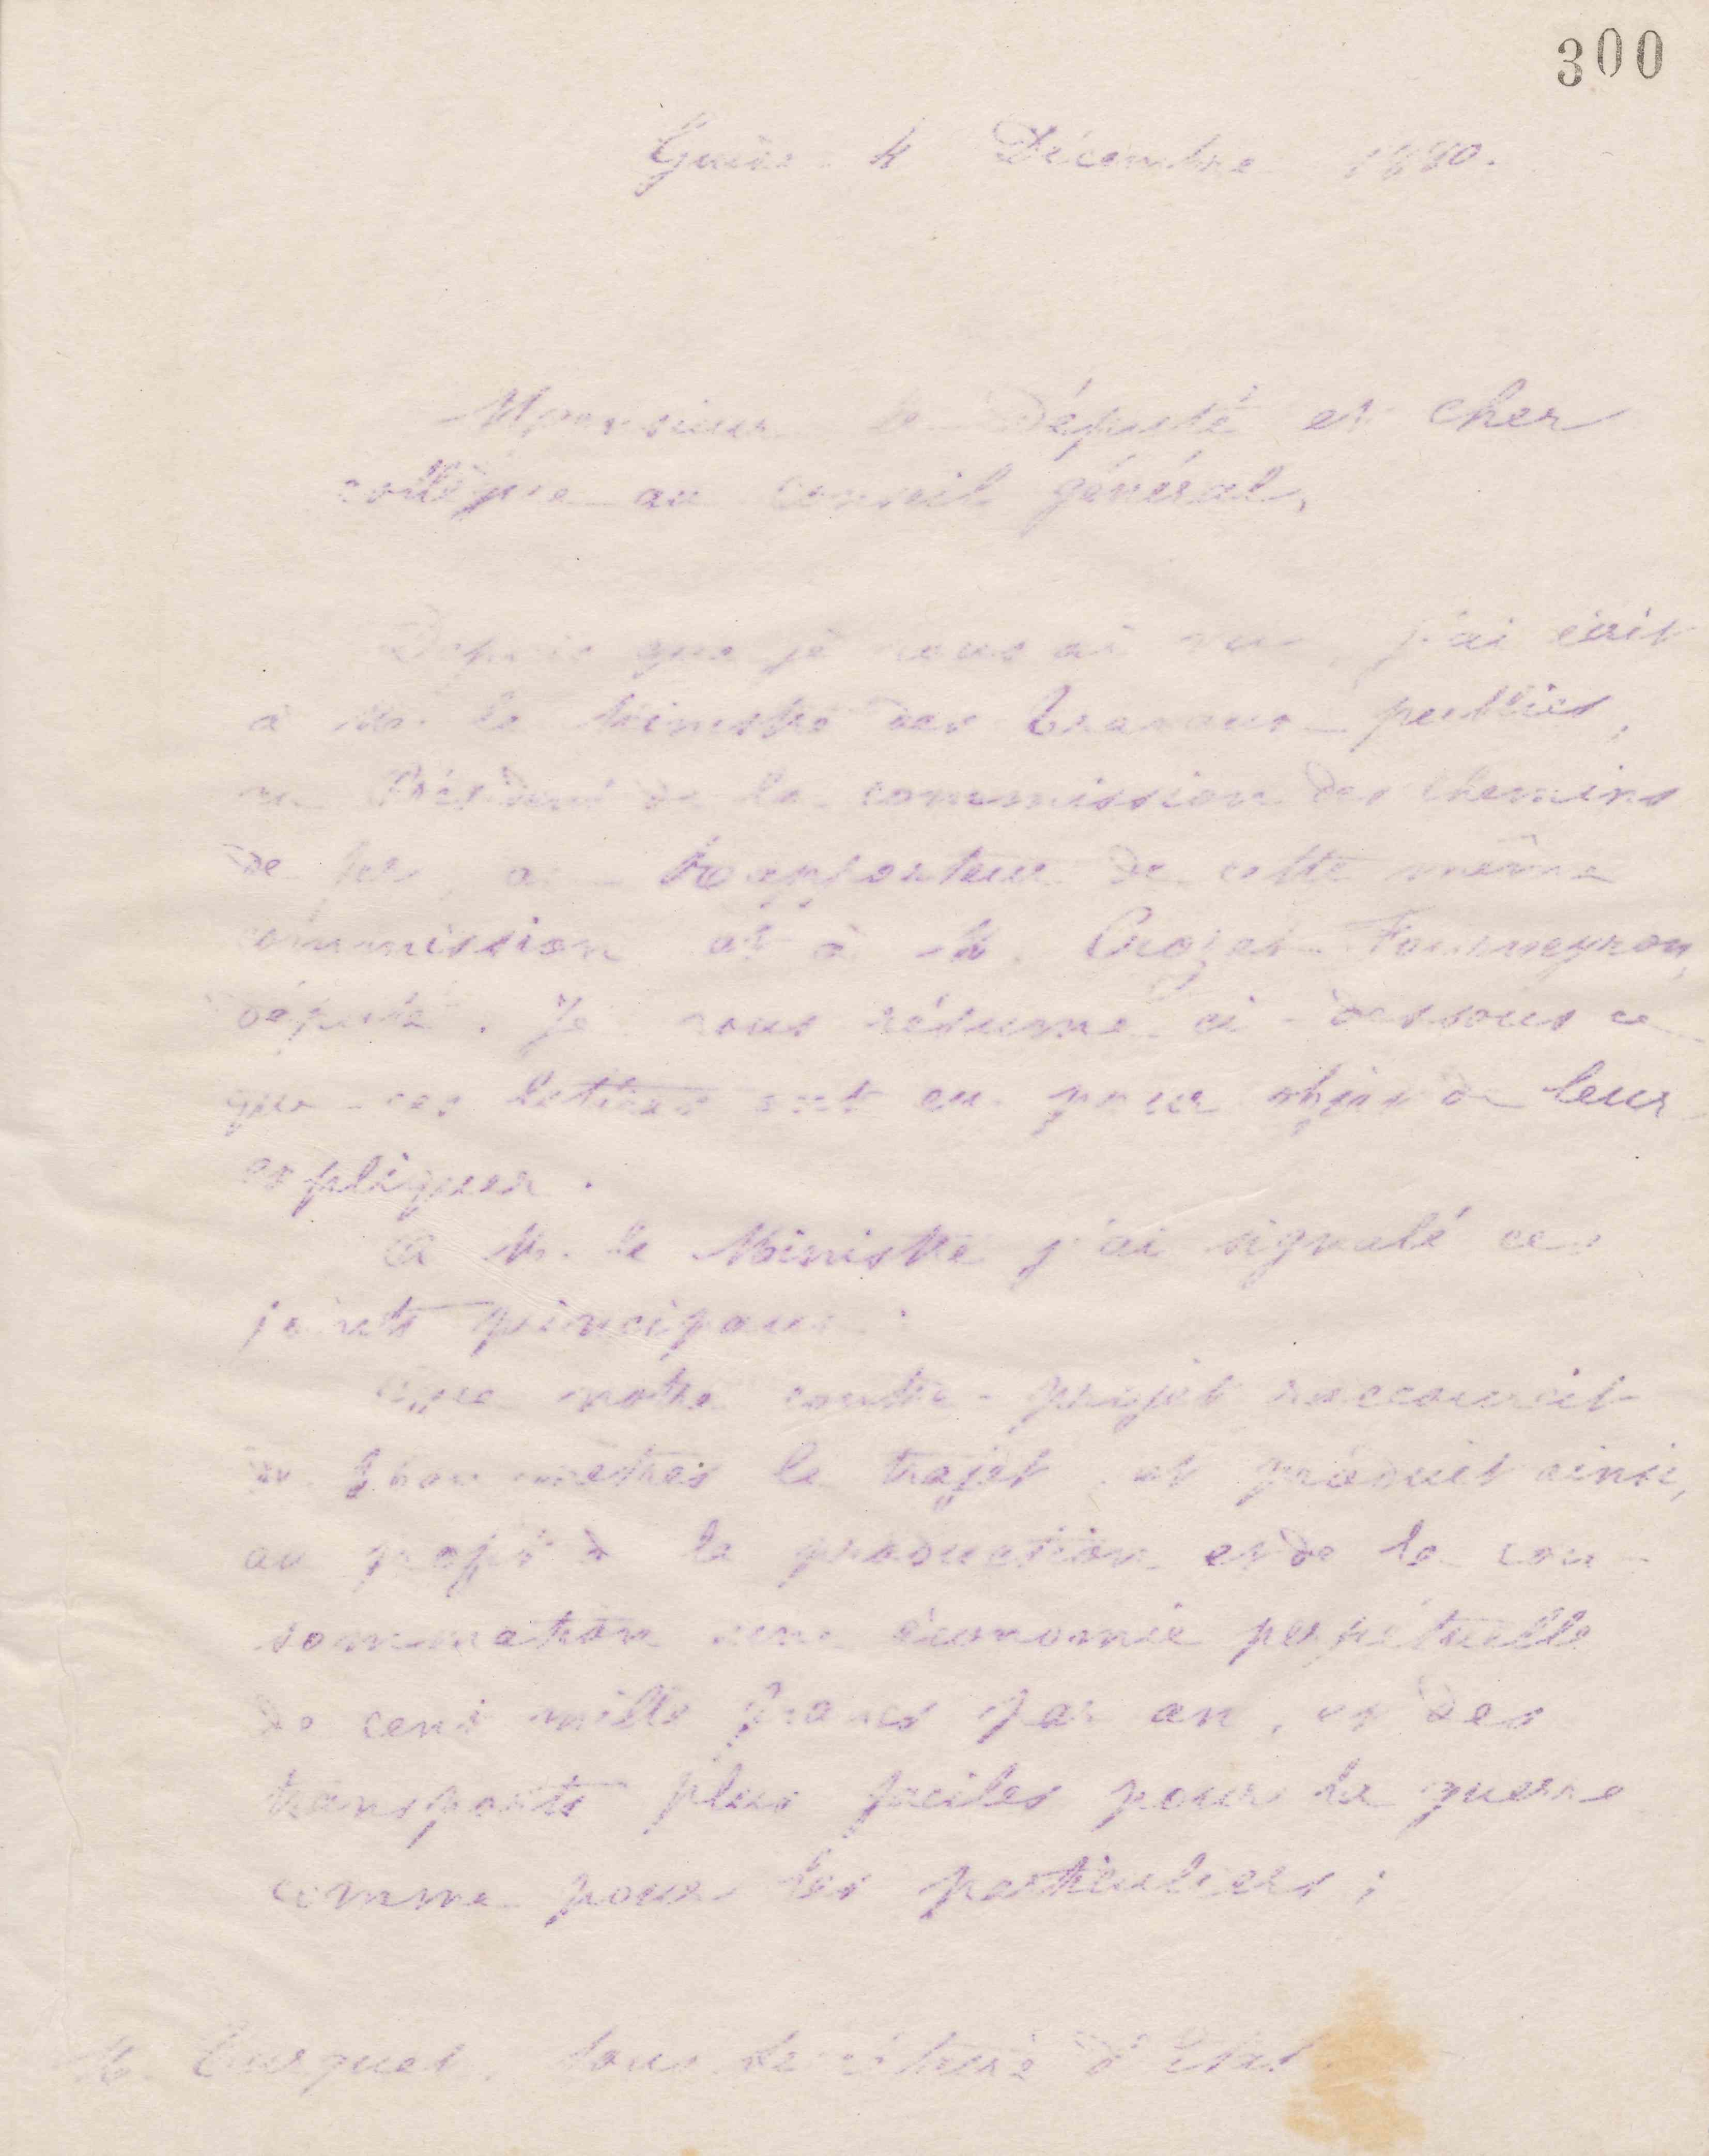 300
Guise 4 Décembre 1880.
Monsieur le Député et cher
collègue au conseil général,
Depuis que je vous ai vu, j'ai écrit
à M. le Ministre des Travaux publics,
au Président de la commission des chemins
de fer, au Rapporteur de cette même
commission et à M. Crozet-Fourneyron,
député. Je vous résume ci-dessous ce
que ces lettres ont eu pour objet de leur
expliquer.
A M. le Ministre j'ai signalé ces
points principaux :
Que notre contre-projet raccourcit
de mètres le trajet et produit ainsi,
au profit de la production et de la con-
sommation une économie perpétuelle
de cent mille francs par an, et des
transports plus faciles pour la guerre
comme pour les particuliers ;
M. Turquet, Sous Secrétaire d'Etat